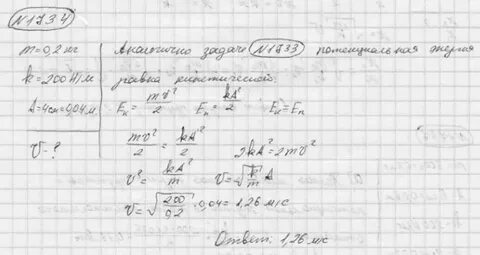 N1734
m=0,2 кг
k=200 Н/м
A=4см=0,04м
v-?
Аналогично задаче N1733 потенциальная энергия
равна кинетической:
Eк = mv²/2 Eп = kA²/2 Eк=Eп
mv²/2 = kA²/2 2kA²=2mv²
v² = kA²/m v=√(k/m) A
v=√(200/0,2) · 0,04 = 1,26 м/с
Ответ: 1,26 м/с